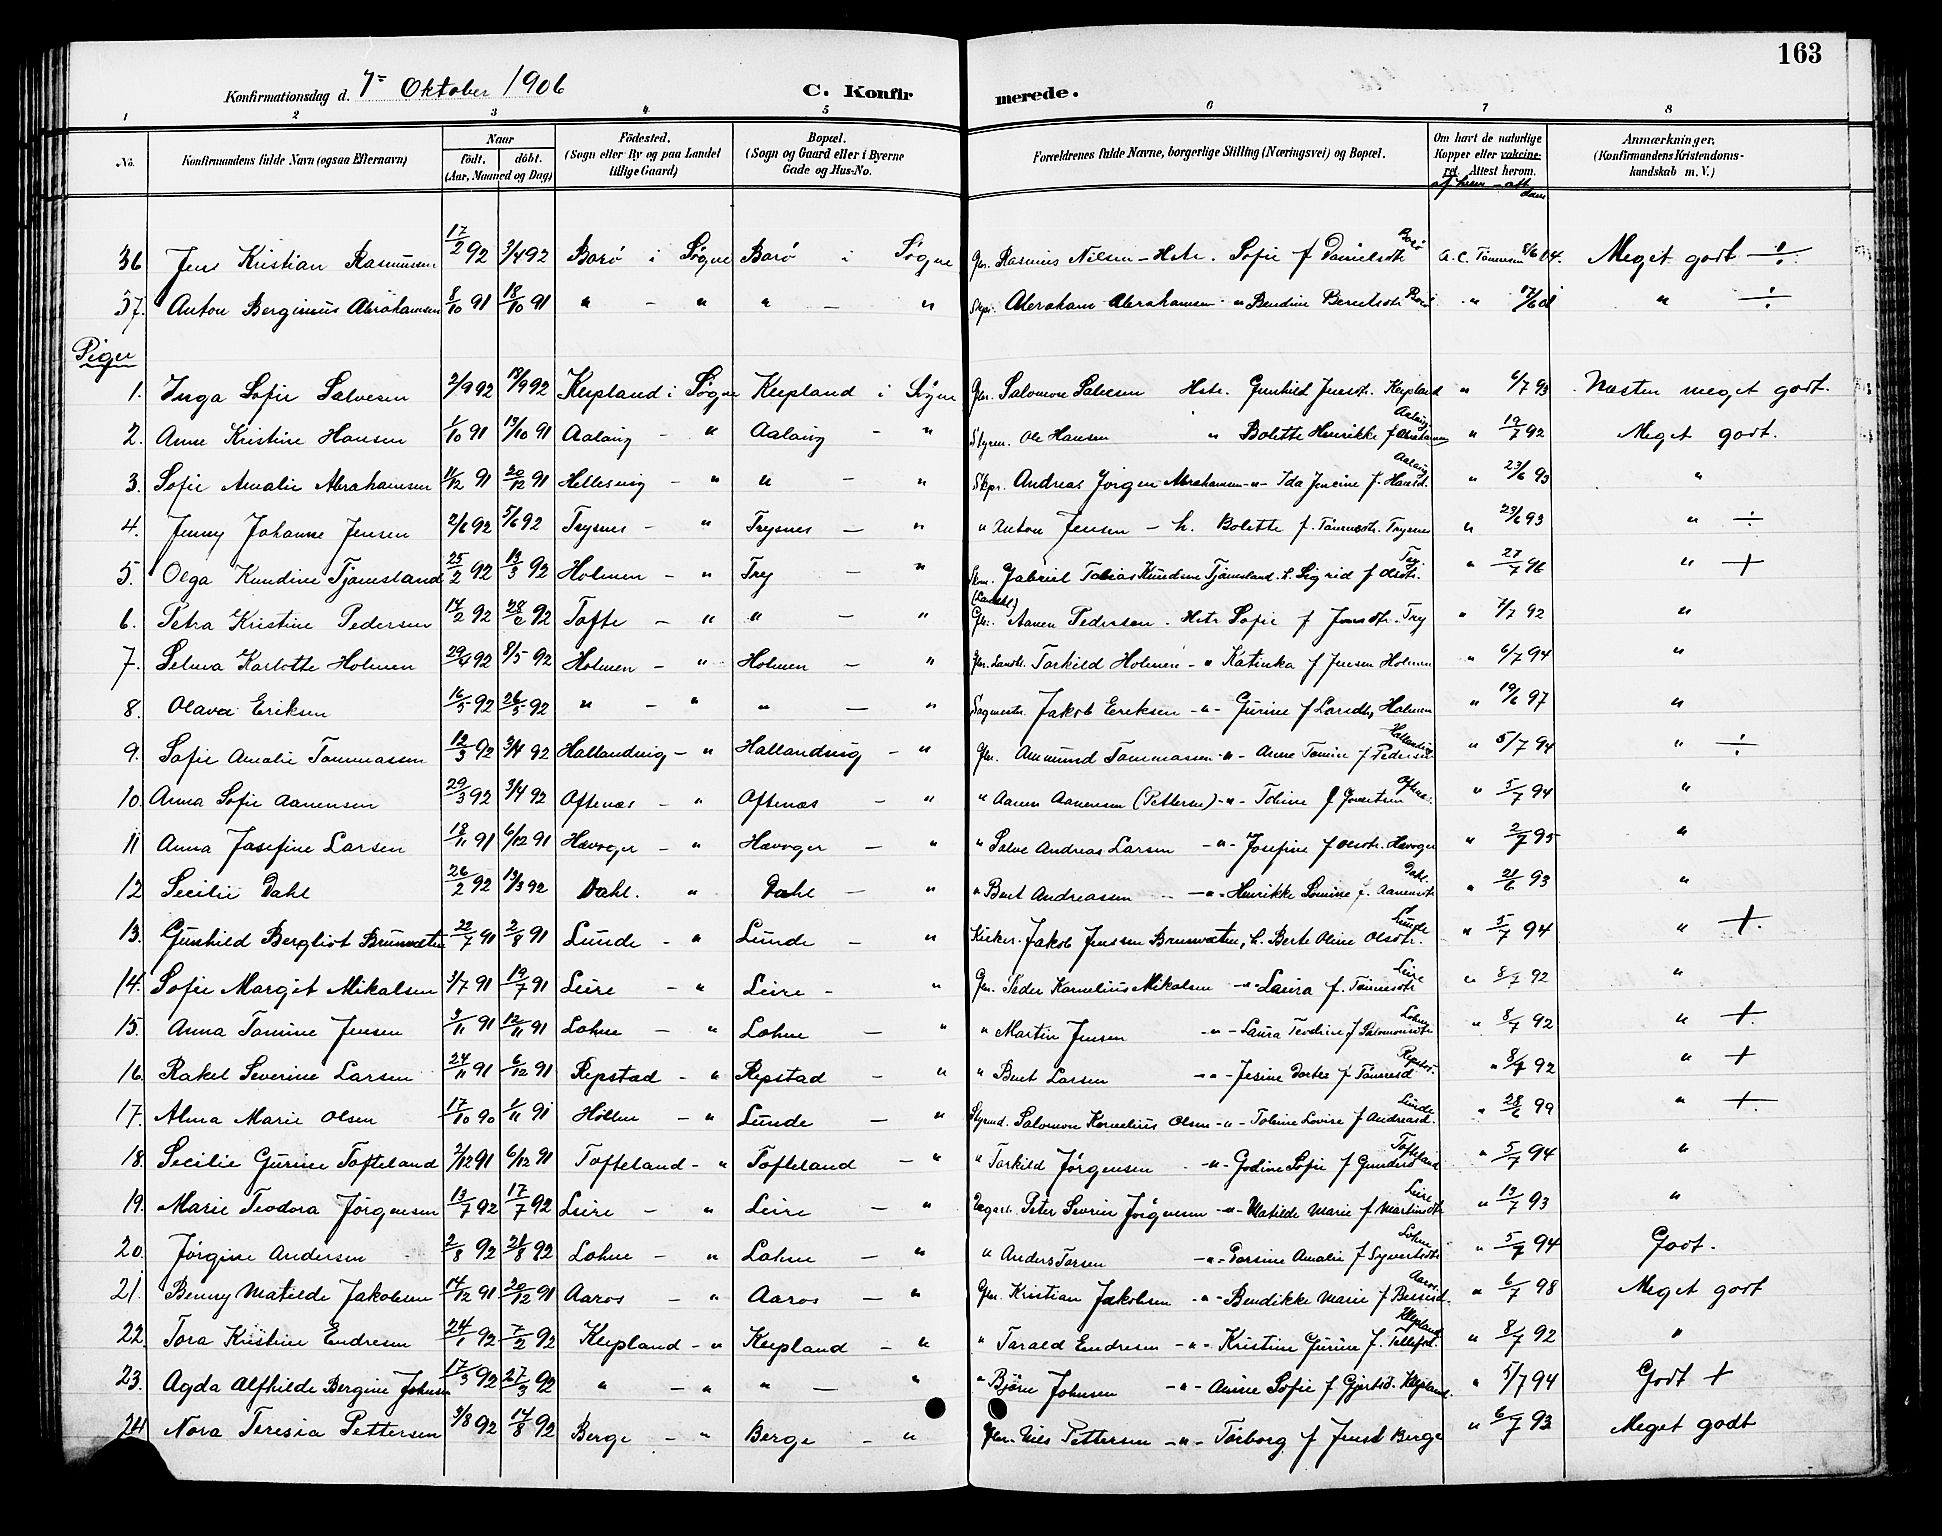 163
Konfirmationsdag d. 7de Oktober 1906 C. Konfirmerede.
1 2 3 4 5 6 7 8
No. Konfirmandens fulde Navn (ogsaa Efternavn) Naar födt. döbt. (Aar, Maaned og Dag) Födested. (Sogn eller By og paa Landet tillige Gaard) Bopæl. (Sogn og Gaard eller i Byerne Gade og Hus-No. Forældrenes fulde Navne, borgerlige Stilling (Næringsvei) og Bopæl. Om havt de naturlige Kopper eller vakcineret. Attest herom. af hvem - att. dato Anmærkninger. (Konfirmandens Kristendomskundskab m. V.)
36 Jens Kristian Rasmussen 17/2 92 3/4 92 Borø i Søgne Borø i Søgne Gbr. Rasmus Nilsen - Hstr. Sofie f Danielsdtr Borø A. C. Tønnesen 8/6 04. Meget godt ÷
37. Anton Berginius Abrahamsen 8/10 91 18/10 91 " - " " - " Skpr. Abraham Abrahamsen - " Bendine Berntsdtr Borø " 17/6 01 " ÷
Piger
1. Inga Sofie Salvesen 2/9 92 18/9 92 Klepland i Søgne Klepland i Søgne Gbr. Salomon Salvesen Hstr. Gunhild Jensdtr. Klepland " 6/7 93 Næsten meget godt.
2. Anne Kristine Hansen 1/10 91 19/10 91 Aalaug - " Aalaug - " Styrm. Ole Hansen " Bolette Henrikke f Abrahamsen Aalaug " 19/7 92 Meget godt.
3. Sofie Amalie Abrahamsen 11/12 91 20/12 91 Hellesvig - " " - " Skpr. Andreas Jørgen Abrahamsen - " - Ida Jensine f. Hansd. Aalaug " 23/6 93 "
4. Jenny Johanne Jensen 2/6 92 5/6 92 Trysnes - " Trysnes - " " Anton Jensen - h. Bolette f. Tønnesdtr. Trysnes " 23/6 93 " ÷
5. Olga Kundine Tjomsland 25/2 92 13/3 92 Holmen - " Try - " Skm. Gabriel Tobias Knudsen Tjomsland. h. Sigrid f Olsdtr. Try. " 27/7 96 " +
6. Petra Kristine Pedersen 14/2 92 28/2 92 Tofte - " " - " Gbr. Aanen Pedersen - Hstr Sofie f Jonsdtr. Try " 7/7 92 "
7. Selma Karlotte Holmen 29/4 92 8/5 92 Holmen - " Holmen - " Gbr. Torkild Holmen - " Katinka f Jensen Holmen " 6/7 94 "
8. Olava Eriksen 16/5 92 26/5 92 " - " " - " Sagmestr. Jakob Eriksen - " - Gurine f Larsdtr, Holmen " 19/6 97 "
9. Sofie Amalie Tommassen 12/3 92 3/4 92 Hallandvig - " Hallandvig - " Gbr. Ammund Tommassen - " - Anne Tomine f Pedersd Hallandvig " 5/7 94 " ÷
10. Anna Sofie Aanensen 29/3 92 3/4 92 Oftenæs - " Oftenæs - " " Aanen Aanensen (Pettersen) - " - Toline f Oftenæs. " 5/7 94 "
11 Anna Josefine Larsen 18/11 91 6/12 91 Havoger - " Havoger - " " Salve Andreas Larsen - " - Josefine f Olsdtr. Havoger " 2/7 95 "
12 Secilie Dahl 26/2 92 19/3 92 Dahl. " Dahl - " " Bent Andreassen - " - Henrikke Lovise f. Aanensdtr Dahl. " 21/6 93 "
13. Gunhild Bergliot Brunvatne 22/7 91 2/8 91 Lunde - " Lunde - " Kirkes. Jakob Jenssen Brunvatne, h. Berte Oline Olsdtr. Lunde " 5/7 94 " +
14. Sofie Margit Mikalsen 3/7 91 19/7 91 Leire - " Leire - " Gbr. Peder Kornelius Mikalsen - " - Laura f. Tønnesdtr Leire " 8/7 92 "
15. Anna Tomine Jensen 3/11 91 12/11 91 Lohne - " Lohne - " " Martin Jensen - " - Laura Teodine f Salomonsdtr Lohne " 8/7 92 " +
16. Rakel Severine Larsen 24/11 91 6/12 91 Repstad - " Repstad - " " Bent Larsen - " - Jesine Dortea f Tønnesd Repstad. " 8/7 92 " +
17. Alma Marie Olsen 17/10 90 1/11 91 Höllen - " Lunde - " Styrmd. Salomon Kornelius Olsen - " - Toline Lovise f Andreasd. Lunde " 28/6 99 " +
18. Secilie Gurine Tofteland 2/12 91 6/12 91 Tofteland - " Tofteland - " " Torkild Jørgensen - " - Godine Sofie f Gundersd Tofteland " 5/7 94 "
19. Marie Teodora Jørgensen 13/7 92 17/7 92 Leire - " Leire - " Dagarb. Peter Sevrin Jørgensen - " - Matilde Marie f Martinsdtr Leire " 13/7 93 "
20. Jørgine Andersen 2/8 92 21/8 92 Lohne - " Lohne - " " Anders Torsen - " - Torsine Amalie f Syvertsdtr Lohne " 5/7 94 Godt.
21. Benny Matilde Jakobsen 14/12 91 20/12 91 Aaros - " Aaros - " Gbr. Kristian Jakobsen - " - Bendikke Marie f Bessesd. Aaros " 6/7 98 Meget godt
22. Tora Kristine Endresen 24/1 92 7/2 92 Klepland - " Klepland - " " Tarald Endresen - " - Kristine Gurine f. Tellefsd. Klepland " 8/7 92 "
23. Agda Alfhilde Bergine Johnsen 17/3 92 27/3 92 " - " " - " " Björn Johnsen - " - Anne Sofie f Gjertsd. Klepland. " 5/7 94 Godt +
24 Nora Teresia Pettersen 3/8 92 14/8 92 Berge - " Berge - " Gbr. Nils Pettersen - " - Torborg f Jensd Berge " 6/7 93 Meget godt